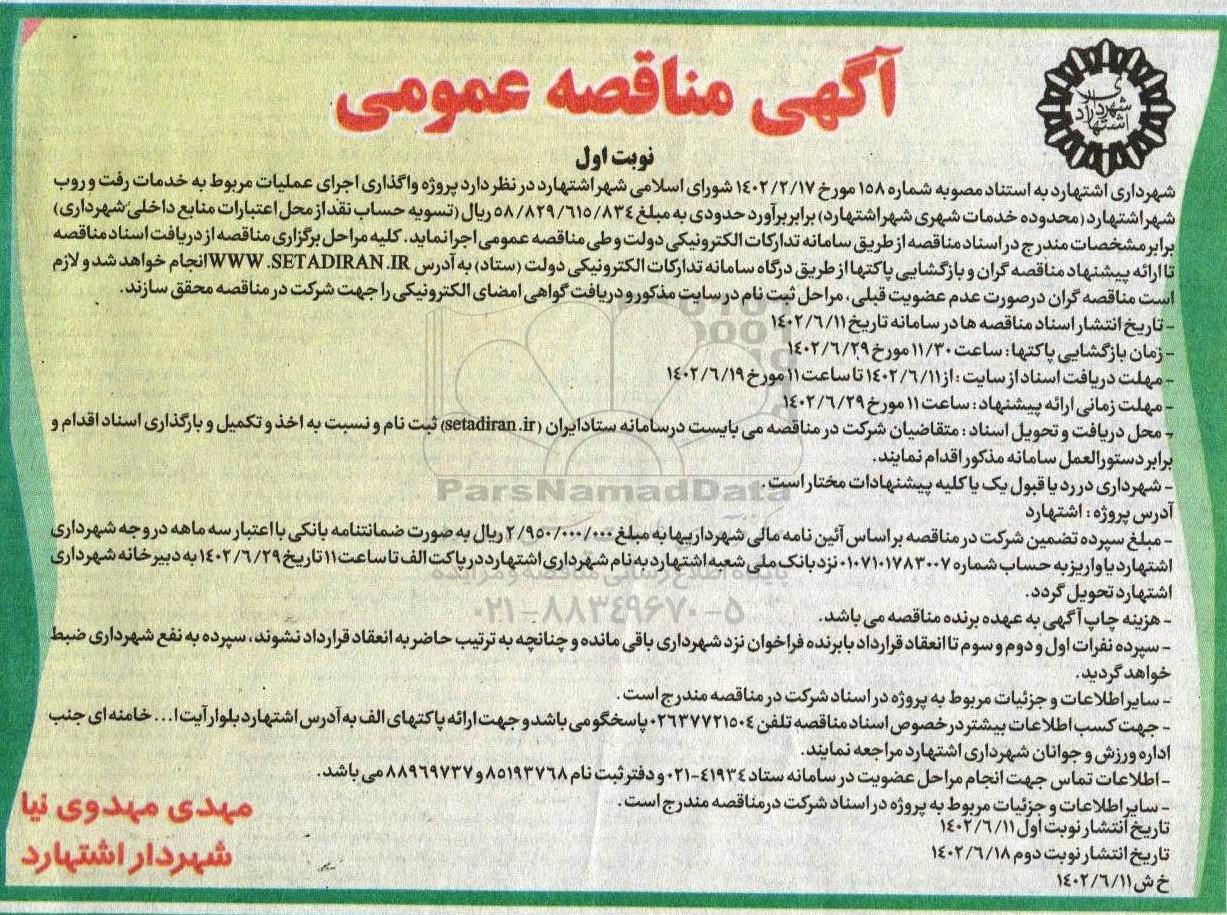 شهرداری
اشتهارد
آگهی مناقصه عمومی
نوبت اول
شهرداری اشتهارد به استناد مصوبه شماره ۱۵۸ مورخ ۱۴۰۲/۲/۱۷ شورای اسلامی شهر اشتهارد در نظر دارد پروژه واگذاری اجرای عملیات مربوط به خدمات رفت و روب
شهر اشتهارد (محدوده خدمات شهری شهر اشتهارد) برابر برآورد حدودی به مبلغ ۵۸/۸۲۹/۶۱۵/۸۳۴ ریال (تسویه حساب نقد از محل اعتبارات منابع داخلی شهرداری)
برابر مشخصات مندرج در اسناد مناقصه از طریق سامانه تدارکات الکترونیکی دولت و طی مناقصه عمومی اجرا نماید. کلیه مراحل برگزاری مناقصه از دریافت اسناد مناقصه
تا ارائه پیشنهاد مناقصه گران و بازگشایی پاکتها از طریق درگاه سامانه تدارکات الکترونیکی دولت (ستاد) به آدرس WWW.SETADIRAN.IR انجام خواهد شد و لازم
است مناقصه گران در صورت عدم عضویت قبلی، مراحل ثبت نام در سایت مذکور و دریافت گواهی امضای الکترونیکی را جهت شرکت در مناقصه محقق سازند.
- تاریخ انتشار اسناد مناقصه ها در سامانه تاریخ ۱۴۰۲/۶/۱۱
- زمان بازگشایی پاکتها: ساعت ۱۱/۳۰ مورخ ۱۴۰۲/۶/۲۹
- مهلت دریافت اسناد از سایت: از ۱۴۰۲/۶/۱۱ تا ساعت ۱۱ مورخ ۱۴۰۲/۶/۱۹
- مهلت زمانی ارائه پیشنهاد: ساعت ۱۱ مورخ ۱۴۰۲/۶/۲۹
- محل دریافت و تحویل اسناد: متقاضیان شرکت در مناقصه می بایست در سامانه ستاد ایران (setadiran.ir) ثبت نام و نسبت به اخذ و تکمیل و بارگذاری اسناد اقدام و
برابر دستورالعمل سامانه مذکور اقدام نمایند.
- شهرداری در رد یا قبول یک یا کلیه پیشنهادات مختار است.
ParsNamadData
آدرس پروژه: اشتهارد
- مبلغ سپرده تضمین شرکت در مناقصه بر اساس آئین نامه مالی شهرداریها به مبلغ ۲/۹۵۰/۰۰۰/۰۰۰ ریال به صورت ضمانتنامه بانکی با اعتبار سه ماهه در وجه شهرداری
اشتهارد یا واریز به حساب شماره ۰۱۰۷۱۰۱۷۸۳۰۰۷ نزد بانک ملی شعبه اشتهارد به نام شهرداری اشتهارد در پاکت الف تا ساعت ۱۱ تاریخ ۱۴۰۲/۶/۲۹ به دبیرخانه شهرداری
پایگاه اطلاع رسانی مناقصه و مزایده
اشتهارد تحویل گردد.
۰۲۱-۸۸۳۴۹۶۷۰-۵
- هزینه چاپ آگهی به عهده برنده مناقصه می باشد.
- سپرده نفرات اول و دوم و سوم تا انعقاد قرارداد با برنده فراخوان نزد شهرداری باقی مانده و چنانچه به ترتیب حاضر به انعقاد قرارداد نشوند، سپرده به نفع شهرداری ضبط
خواهد گردید.
- سایر اطلاعات و جزئیات مربوط به پروژه در اسناد شرکت در مناقصه مندرج است.
- جهت کسب اطلاعات بیشتر در خصوص اسناد مناقصه تلفن ۰۲۶۳۷۷۲۱۵۰۴ پاسخگو می باشد و جهت ارائه پاکتهای الف به آدرس اشتهارد بلوار آیت ا... خامنه ای جنب
اداره ورزش و جوانان شهرداری اشتهارد مراجعه نمایند.
- اطلاعات تماس جهت انجام مراحل عضویت در سامانه ستاد ۴۱۹۳۴-۰۲۱ و دفتر ثبت نام ۸۵۱۹۳۷۶۸ و ۸۸۹۶۹۷۳۷ می باشد.
- سایر اطلاعات و جزئیات مربوط به پروژه در اسناد شرکت در مناقصه مندرج است.
تاریخ انتشار نوبت اول ۱۴۰۲/۶/۱۱
تاریخ انتشار نوبت دوم ۱۴۰۲/۶/۱۸
خ ش ۱۴۰۲/۶/۱۱
مهدی مهدوی نیا
شهردار اشتهارد